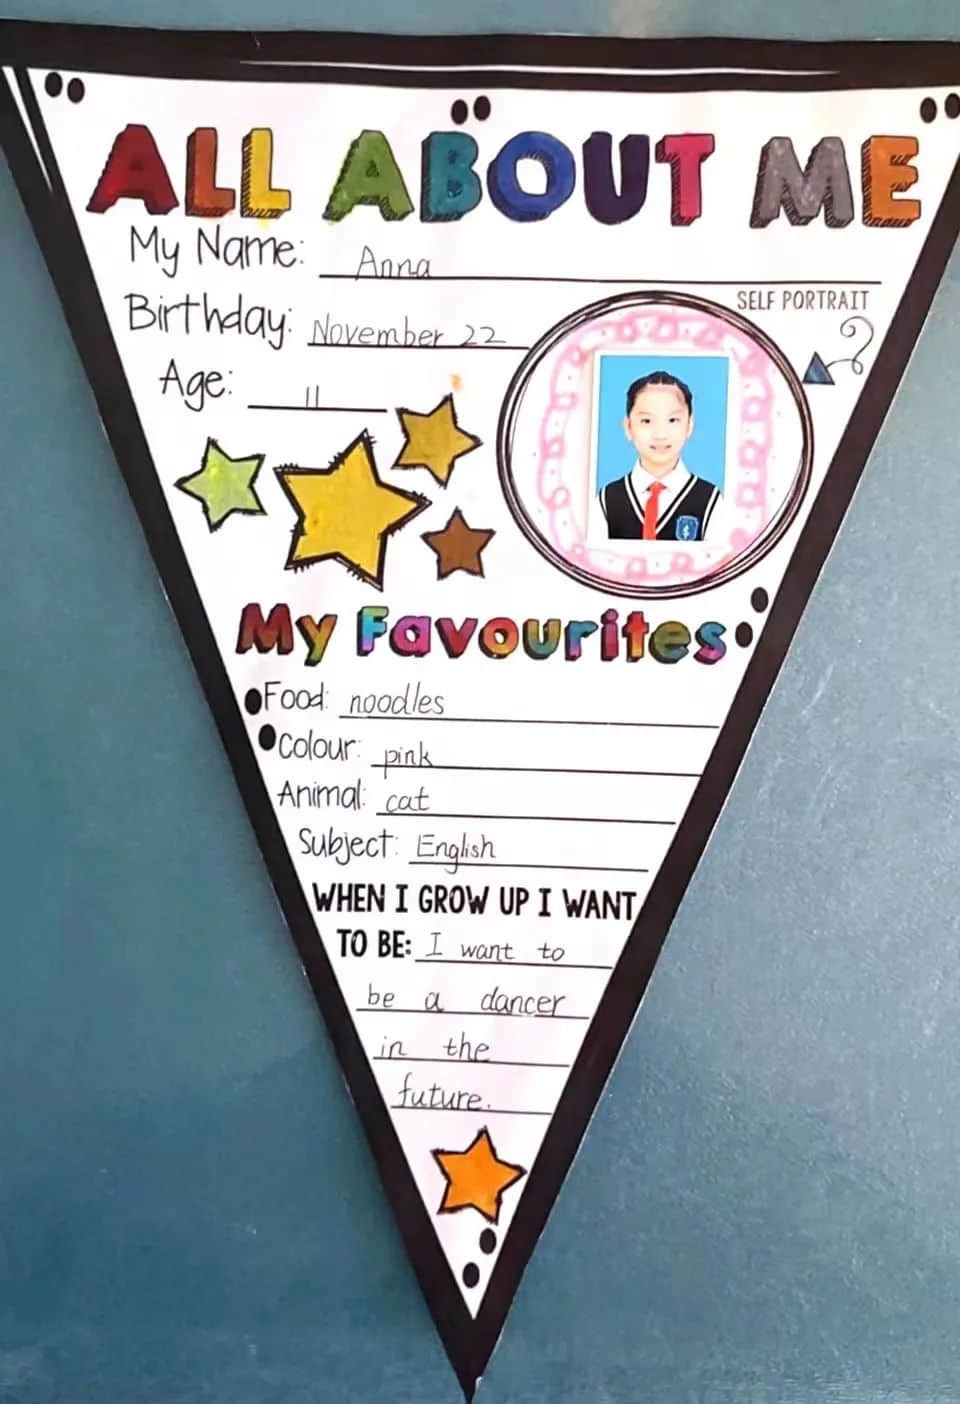 ALL ABOUT ME
My Name: Anna
Birthday: November 22
SELF PORTRAIT
Age: 11
My Favourites
Food: noodles
Colour: pink
Animal: cat
Subject: English
WHEN I GROW UP I WANT
TO BE: I want to
be a dancer
in the
future.